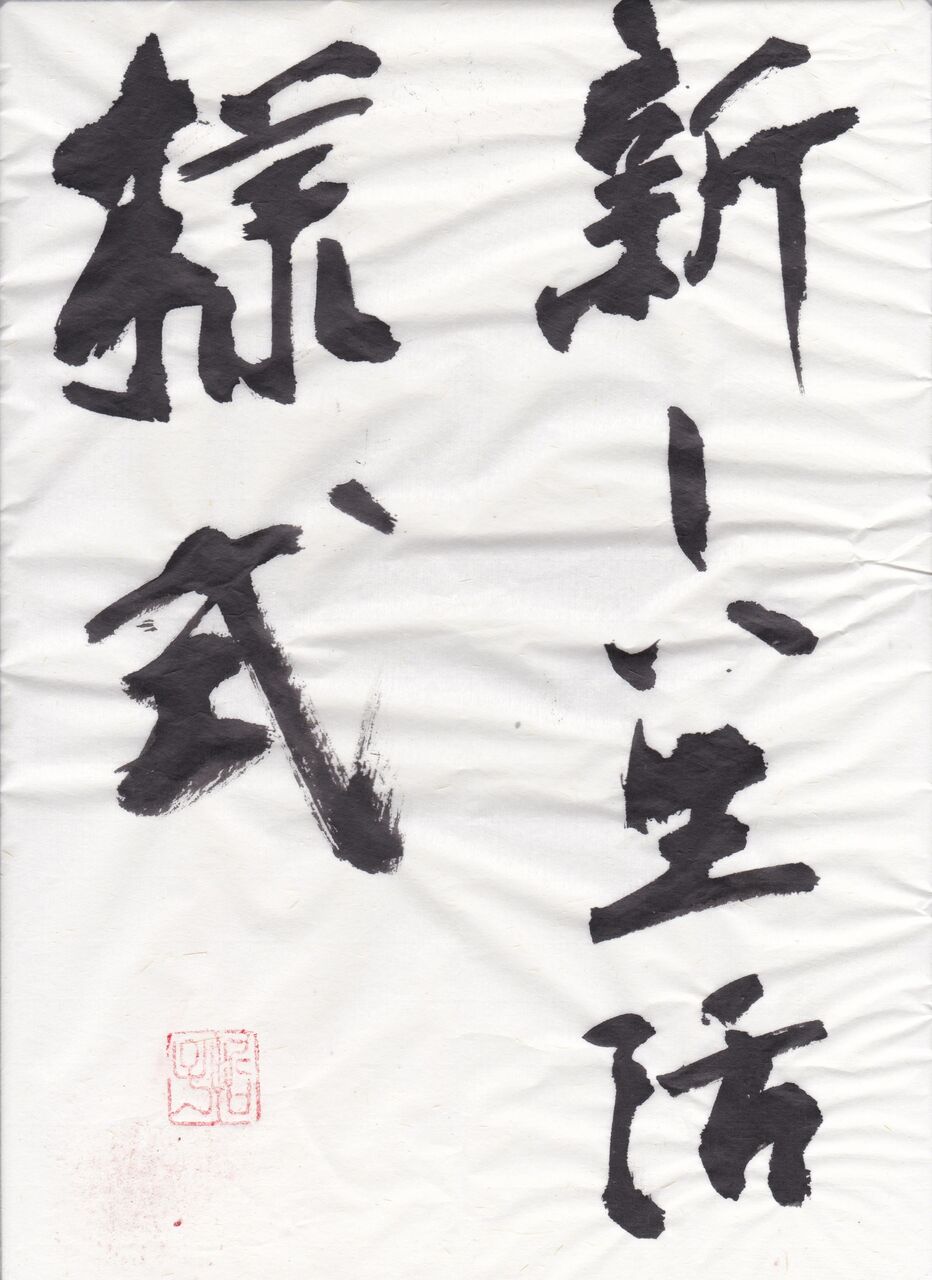 新しい生活
様式